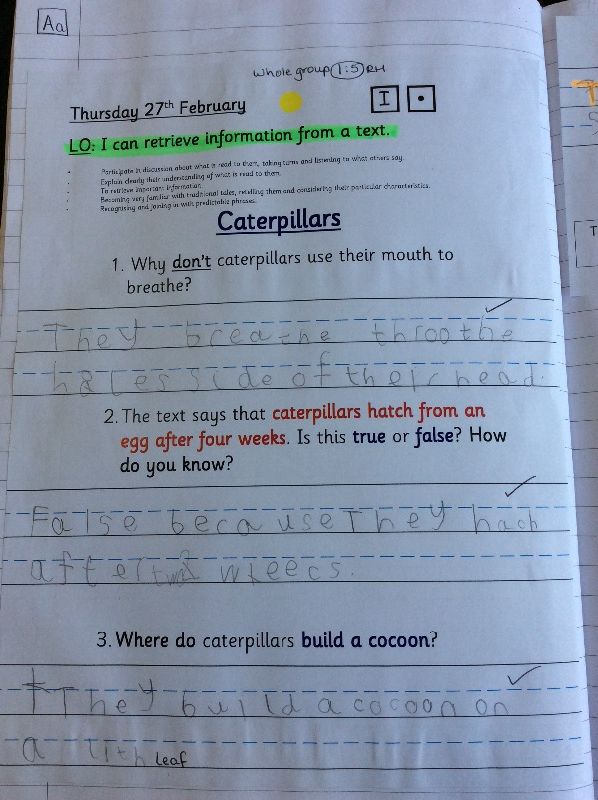 Aa
Whole group 1:5 RH
Thursday 27th February
I
LO: I can retrieve information from a text.
Participate in discussion about what is read to them, taking turns and listening to what others say.
Explain clearly their understanding of what is read to them.
To retrieve important information.
Becoming very familiar with traditional tales, retelling them and considering their particular characteristics.
Recognising and joining in with predictable phrases.
Caterpillars
1. Why don't caterpillars use their mouth to
breathe?
They breathe throo the
holes side of their head.
2. The text says that caterpillars hatch from an
egg after four weeks. Is this true or false? How
do you know?
False because They hach
after wheecs.
3. Where do caterpillars build a cocoon?
They build a cocoon on
a leaf